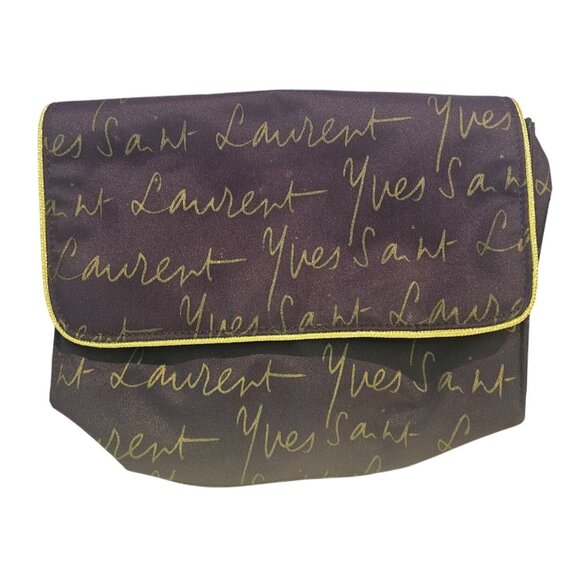 es Saint Laurent Yves
aint Laurent Yves Saint L
Laurent Yves Saint La
Yves Saint Laure
nt Laurent Yves Saint
urent Yves Saint La